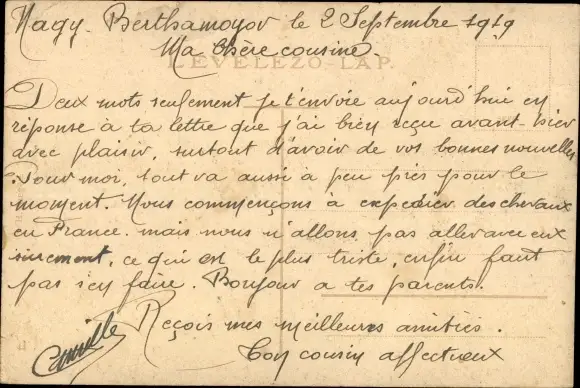 Nagy-Berthamoyov le 2 Septembre 1919
Ma chère cousine.
LEVELEZŐ-LAP
Deux mots seulement je t'envoie aujourd'hui en
réponse à ta lettre que j'ai bien reçu avant-hier
avec plaisir, surtout d'avoir de vos bonnes nouvelles
Pour moi, tout va aussi à peu près pour le
moment. Nous commençons à expédier des chevaux
en France. mais nous n'allons pas aller avec eux
surement, ce qui est le plus triste, enfin faut
pas s'en faire. Bonjour a tes parents.
Reçois mes meilleures amitiés.
Ton cousin affectueux
Camille